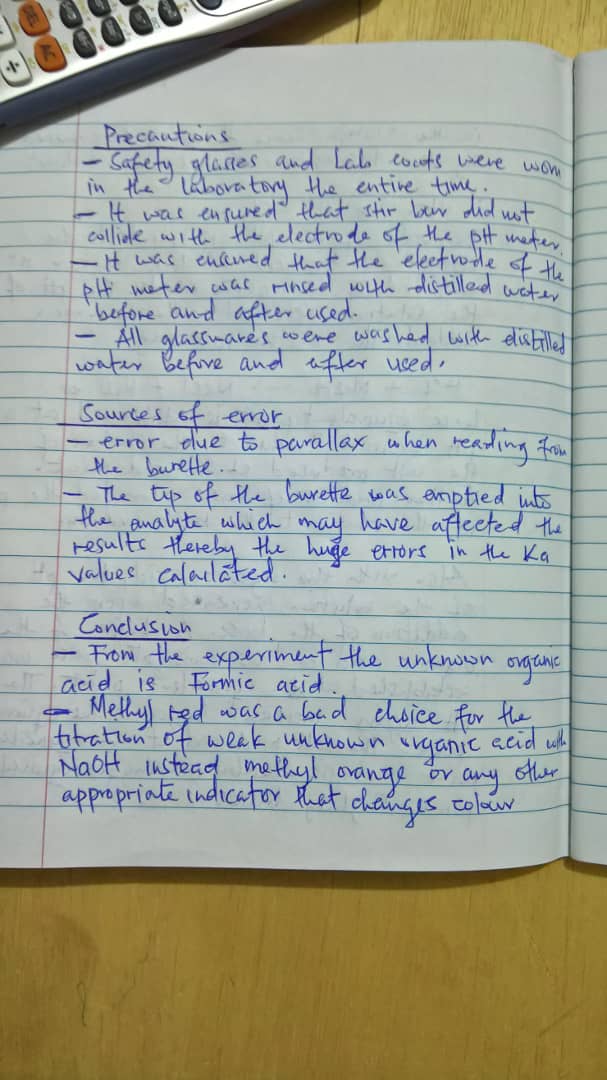 Precautions
- Safety glasses and Lab coats were worn
in the laboratory the entire time.
- It was ensured that stir bar did not
collide with the electrode of the pH meter.
- It was ensured that the electrode of the
pH meter was rinsed with distilled water
before and after used.
- All glasswares were washed with distilled
water before and after used.
Sources of error
- error due to parallax when reading from
the burette.
- The tip of the burette was emptied into
the analyte which may have affected the
results thereby the huge errors in the Ka
values calculated.
Conclusion
- From the experiment the unknown organic
acid is Formic acid.
- Methyl red was a bad choice for the
titration of weak unknown organic acid with
NaOH instead methyl orange or any other
appropriate indicator that changes colour